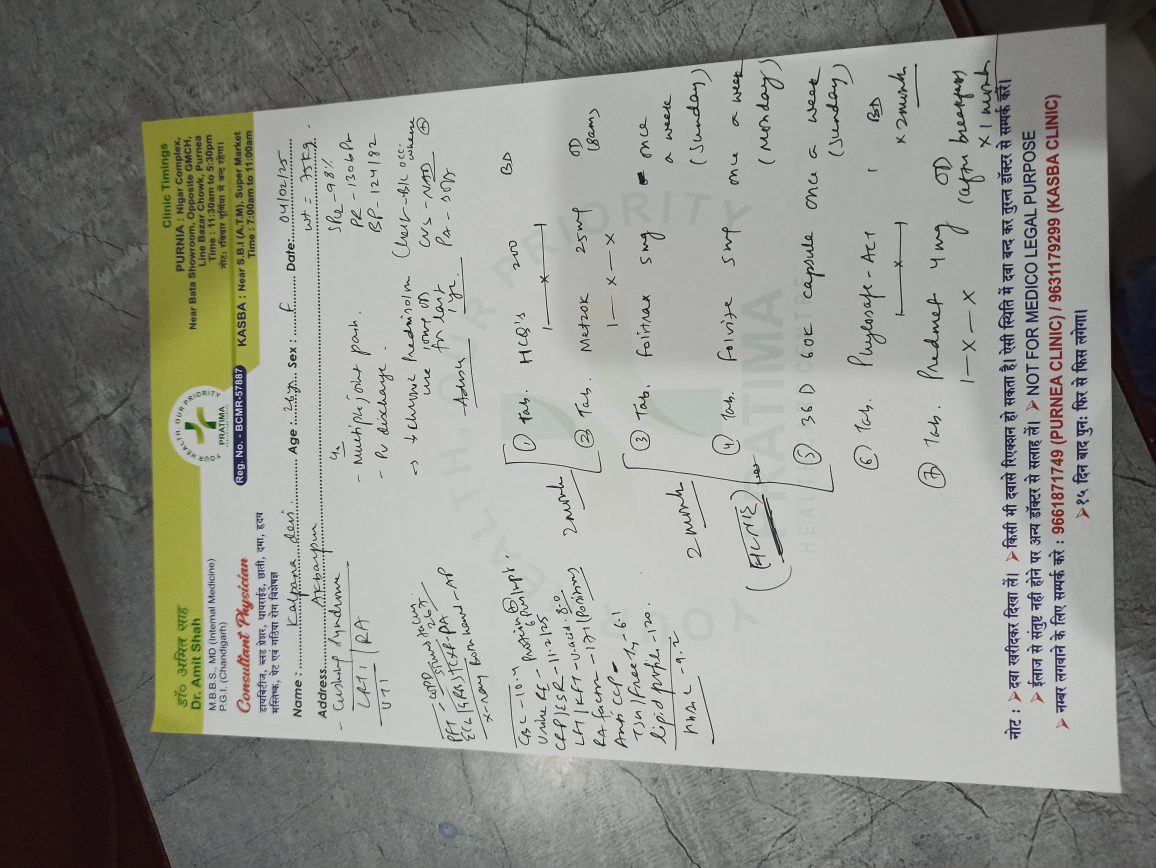 डॉ० अमित साह
Dr. Amit Shah
M.B.B.S., MD (Internal Medicine)
P.G.I. (Chandigarh)
Consultant Physician
डायबिटीज, ब्लड प्रेशर, थायराईड, छाती, दमा, हृदय
मस्तिष्क, पेट एवं गठिया रोग विशेषज्ञ
YOUR HEALTH, OUR PRIORITY
PRATIMA
Reg. No. - BCMR-57887
Clinic Timings
PURNIA : Nigar Complex,
Near Bata Showroom, Opposite GMCH,
Line Bazar Chowk, Purnea
Time : 11:30am to 5:30pm
नोट: रविवार पूर्णिया में बन्द रहेगा।
KASBA : Near S.B.I (A.T.M), Super Market
Time : 7:00am to 11:00am
Name : Kalpana devi Age : 26y Sex : F Date: 04/02/25
Address Akbarpur wt = 75kg.
- Cushing syndrome
UTI
RA
- Multiple joint pain.
- PV discharge.
→ chronic Prednisolone
use
for last
1yr.
- 98%
PR - 130bpm
BP - 124/82
CVS - NAD
PFT -
X-ray both hand - AP
CBC - 10.4
Urine RE -
CRP/ESR - 11.2/25
LFT/KFT - U.acid - 8.0
RA factor - 171 (Positive)
Anti CCP - 6.1
lipid profile - 120.
HbA1c - 9.2
① Tab. HCQ's 200 BD
1——x——1
② Tab. Metzok 25mg OD
1—x—x (8am)
2 month
③ Tab. Folitrax 5mg once
a week
(Sunday)
④ Tab. Folvite 5mg once a week
(Monday)
2 month
⑤ 36 D 60K capsule once a week
(Sunday)
⑥ Tab. 1 BD
1——x——1 x 2month
⑦ Tab. Predmet 4mg OD
1—x—x (after breakfast)
x 1 month
YOUR HEALTH, OUR PRIORITY
PRATIMA
HEALTH CARE CENTRE
नोट : ➤ दवा खरीदकर दिखा लें। ➤ किसी भी दवासे रिएक्शन हो सकता है। ऐसी स्थिति में दवा बन्द कर तुरन्त डॉक्टर से सम्पर्क करें।
➤ ईलाज से संतुष्ट नही होने पर अन्य डॉक्टर से सलाह लें। ➤ NOT FOR MEDICO LEGAL PURPOSE
➤ नम्बर लगवाने के लिए सम्पर्क करे : 9661871749 (PURNEA CLINIC) / 9631179299 (KASBA CLINIC)
➤ १५ दिन बाद पुनः फिर से फिस लगेगा।